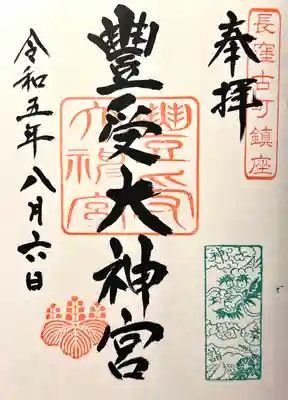 長窪古町鎮座
奉拝
豊受大神宮
豊受大神宮
令和五年八月六日